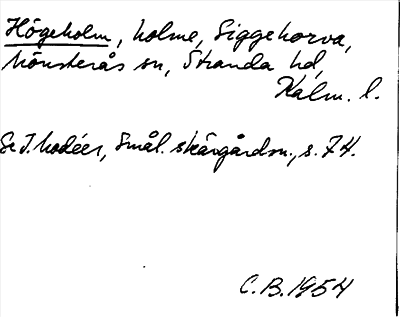 Högeholm, holme, Siggehorva,
Mönsterås sn, Stranda hd,
Kalm. l.
Se J. Modéer, Smål. skärgårdsn., s. 74.
C.B. 1954